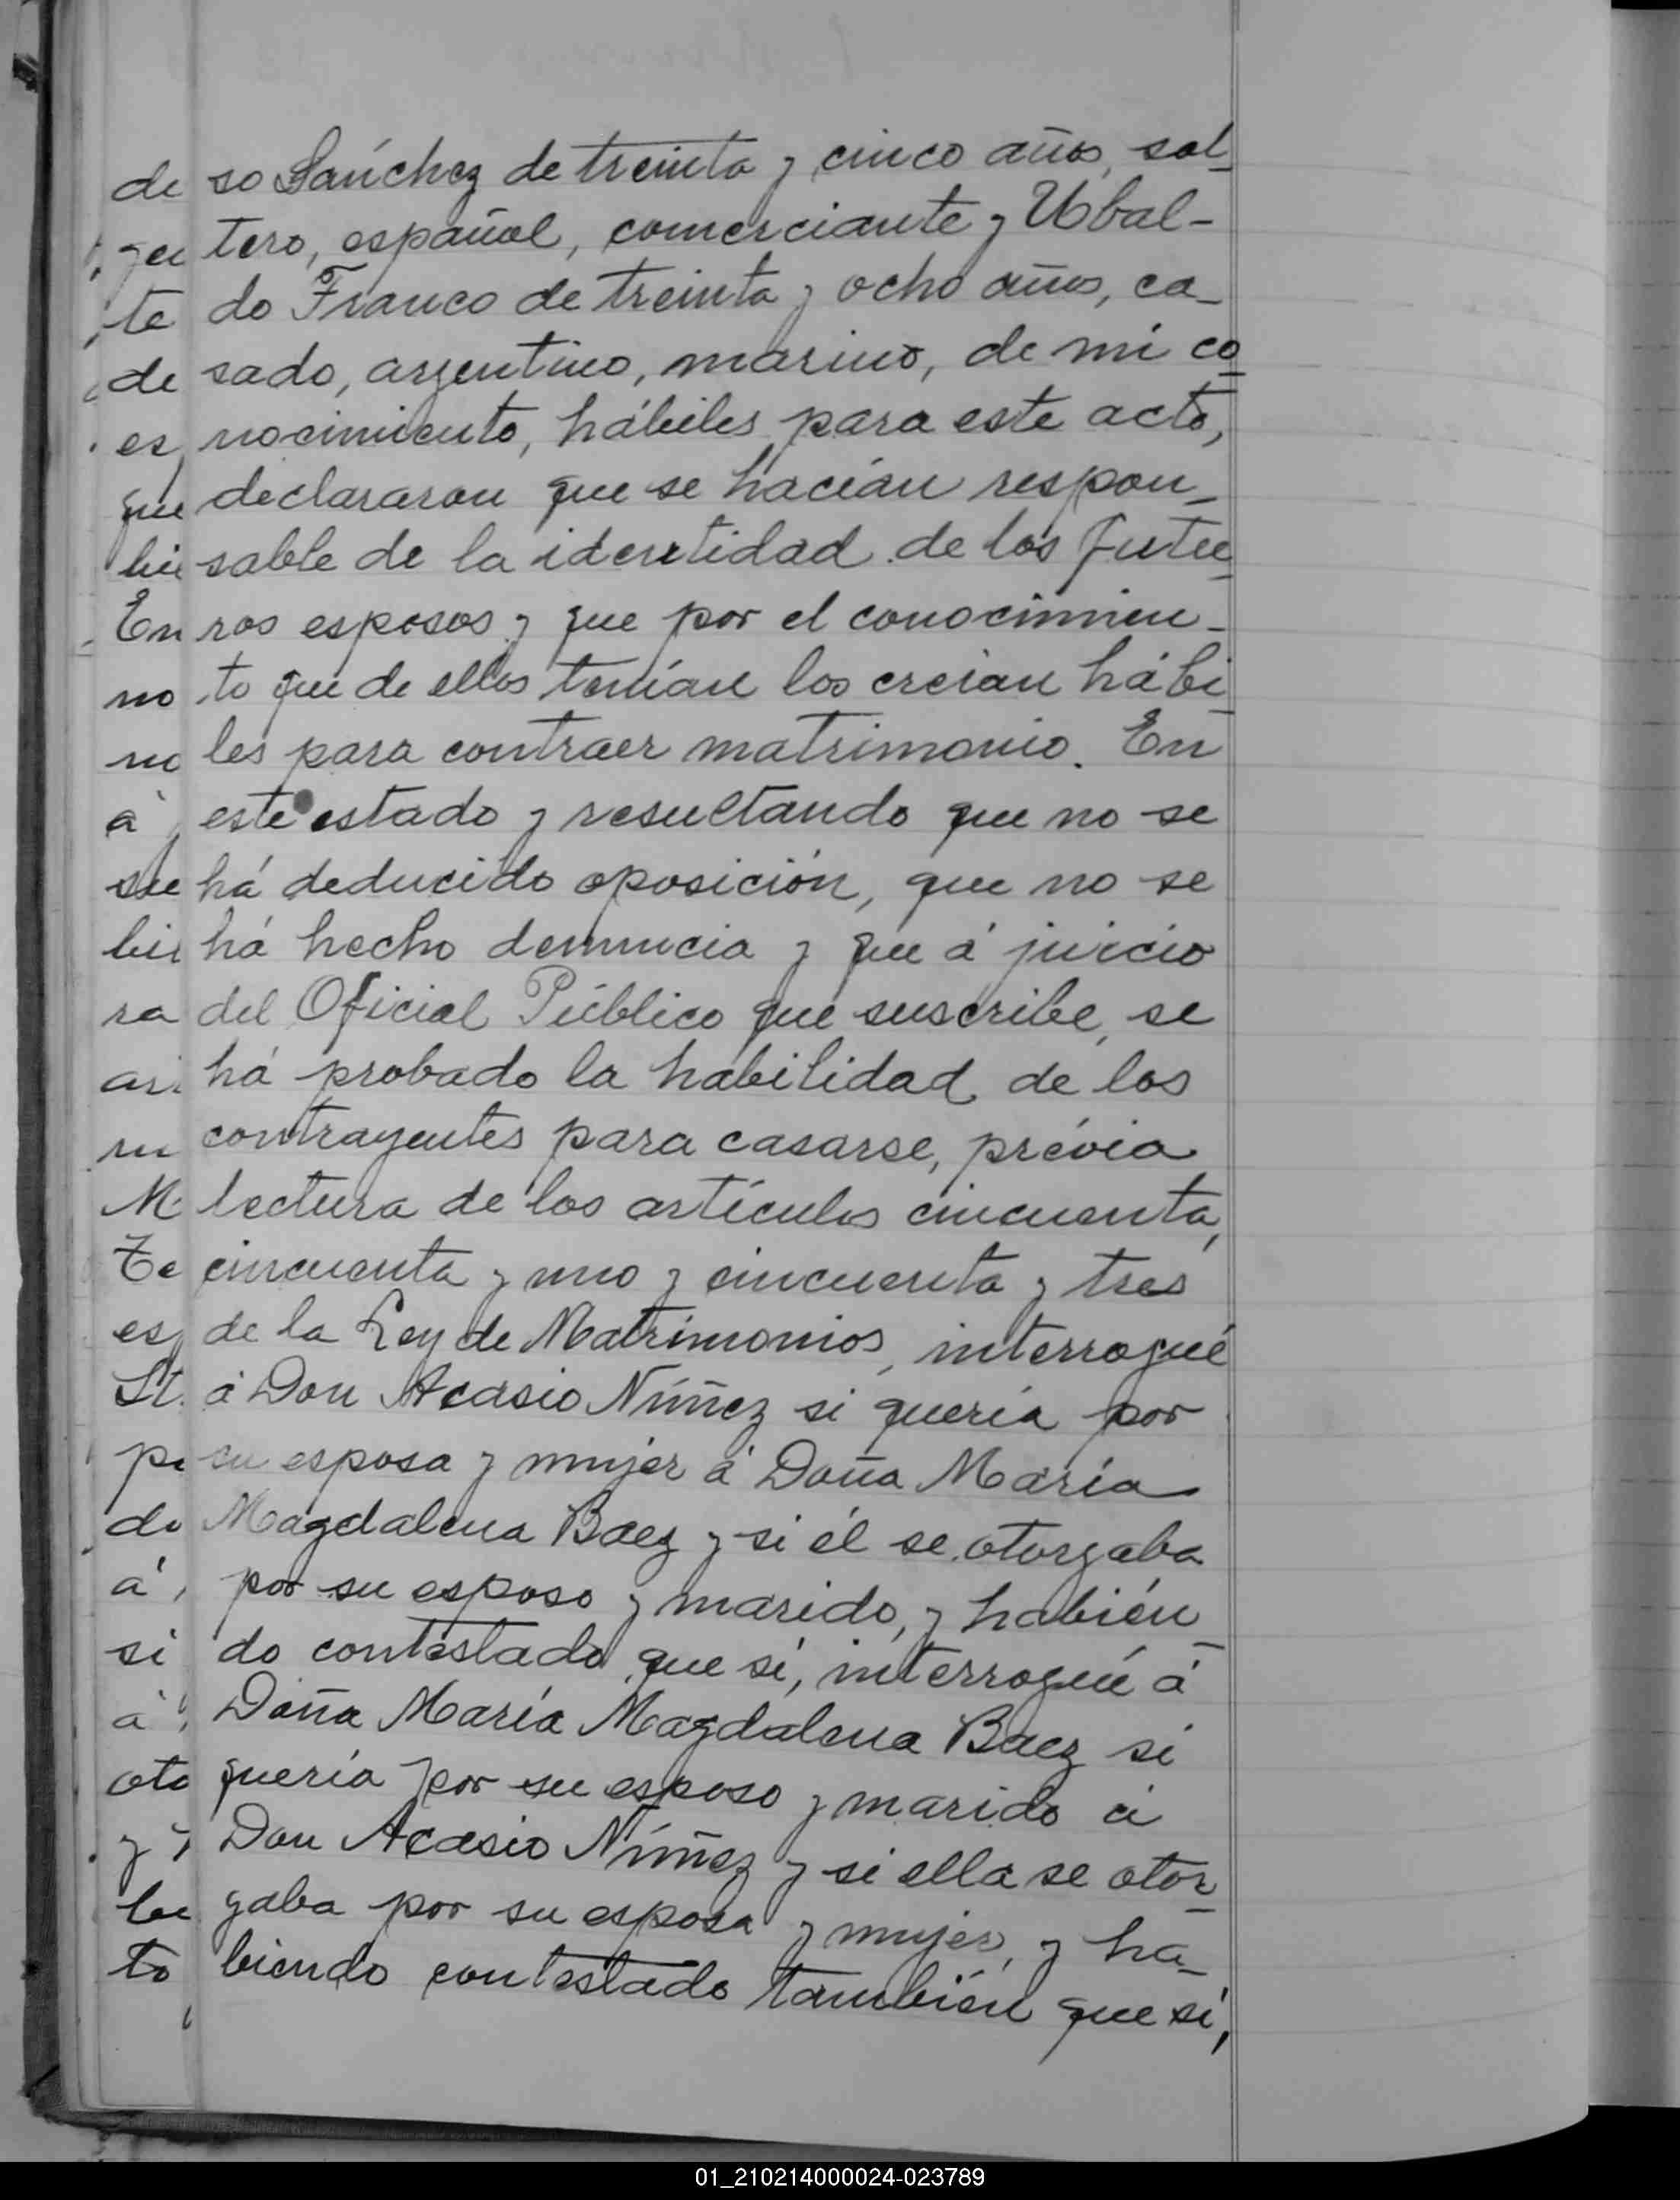 so Sánchez de treinta y cinco años, sol-
tero, español, comerciante y Ubal-
do Franco de treinta y ocho años, ca-
sado, argentino, marino, de mi co-
nocimiento, hábiles para este acto,
declararon que se hacían respon-
sable de la identidad de los futu-
ros esposos y que por el conocimien-
to que de ellos tenían los creían hábi-
les para contraer matrimonio. En
este estado y resultando que no se
há deducido oposición, que no se
há hecho denuncia y que á juicio
del Oficial Público que suscribe, se
há probado la habilidad de los
contrayentes para casarse, prévia
lectura de los artículos cincuenta,
cincuenta y uno y cincuenta y tres
de la Ley de Matrimonios, interrogué
á Don Acasio Núñez si quería por
su esposa y mujer á Doña María
Magdalena Baez y si él se otorgaba
por su esposo y marido, y habién-
do contestado que sí, interrogué á
Doña María Magdalena Baez si
quería por su esposo y marido á
Don Acasio Núñez y si ella se otor-
gaba por su esposa y mujer, y ha-
biendo contestado también que sí,
01_210214000024-023789